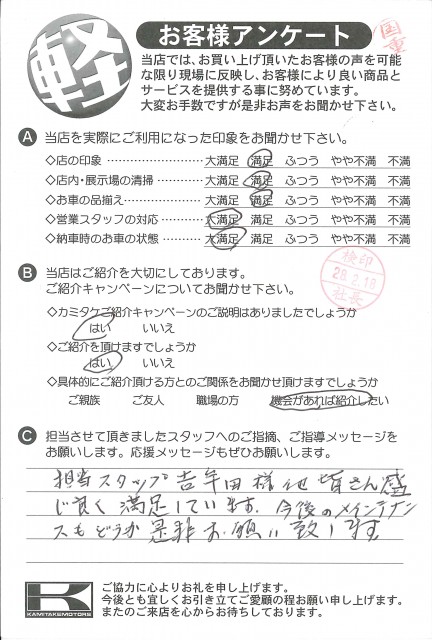 軽
お客様アンケート
国重
当店では、お買い上げ頂いたお客様の声を可能
な限り現場に反映し、お客様により良い商品と
サービスを提供する事に努めています。
大変お手数ですが是非お声をお聞かせ下さい。
A 当店を実際にご利用になった印象をお聞かせ下さい。
◇店の印象 …………………… 大満足 満足 ふつう やや不満 不満
◇店内・展示場の清掃 ………… 大満足 満足 ふつう やや不満 不満
◇お車の品揃え………………… 大満足 満足 ふつう やや不満 不満
◇営業スタッフの対応 ………… 大満足 満足 ふつう やや不満 不満
◇納車時のお車の状態 ………… 大満足 満足 ふつう やや不満 不満
検印
28.2.18
社長
B 当店はご紹介を大切にしております。
ご紹介キャンペーンについてお聞かせ下さい。
◇カミタケご紹介キャンペーンのご説明はありましたでしょうか
はい いいえ
◇ご紹介を頂けますでしょうか
はい いいえ
◇具体的にご紹介頂ける方とのご関係をお聞かせ頂けますでしょうか
ご親族 ご友人 職場の方 機会があれば紹介したい
C 担当させて頂きましたスタッフへのご指摘、ご指導メッセージを
お願いします。応援メッセージもぜひお願いします。
担当スタッフ吉年田様他皆さん感
じ良く満足しています。今後のメインテナン
スもどうか是非お願い致します
K
KAMITAKE MOTORS
ご協力に心よりお礼を申し上げます。
今後とも宜しくお引き立てご愛顧の程お願い申し上げます。
またのご来店を心からお待ちしております。